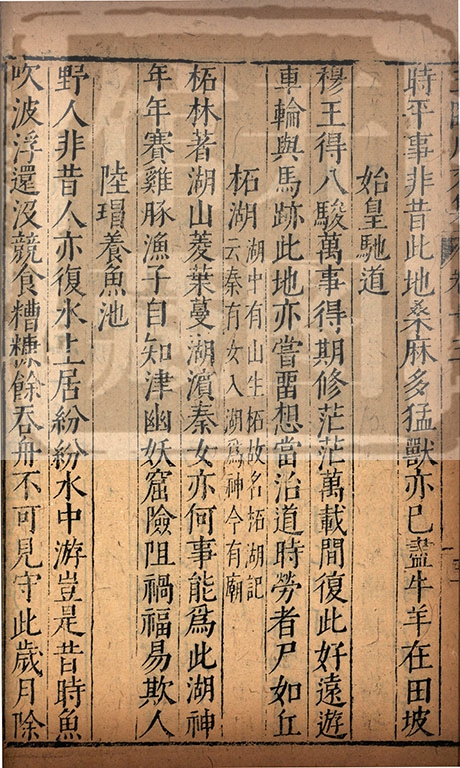 時平事非昔此地桑麻多猛獸亦已盡牛羊在田坡
始皇馳道
穆王得八駿萬事得期修茫茫萬載間復此好遠遊
車輪與馬跡此地亦嘗畱想當治道時勞者尸如丘
柘湖
湖中有山生柘故名柘湖記
云秦有女入湖爲神今有廟
柘林著湖山菱葉蔓湖濵秦女亦何事能爲此湖神
年年賽雞豚漁子自知津幽妖窟險阻禍福易欺人
陸瑁養魚池
野人非昔人亦復水上居紛紛水中游豈是昔時魚
吹波浮還沒競食糟糠餘吞舟不可見守此歲月除